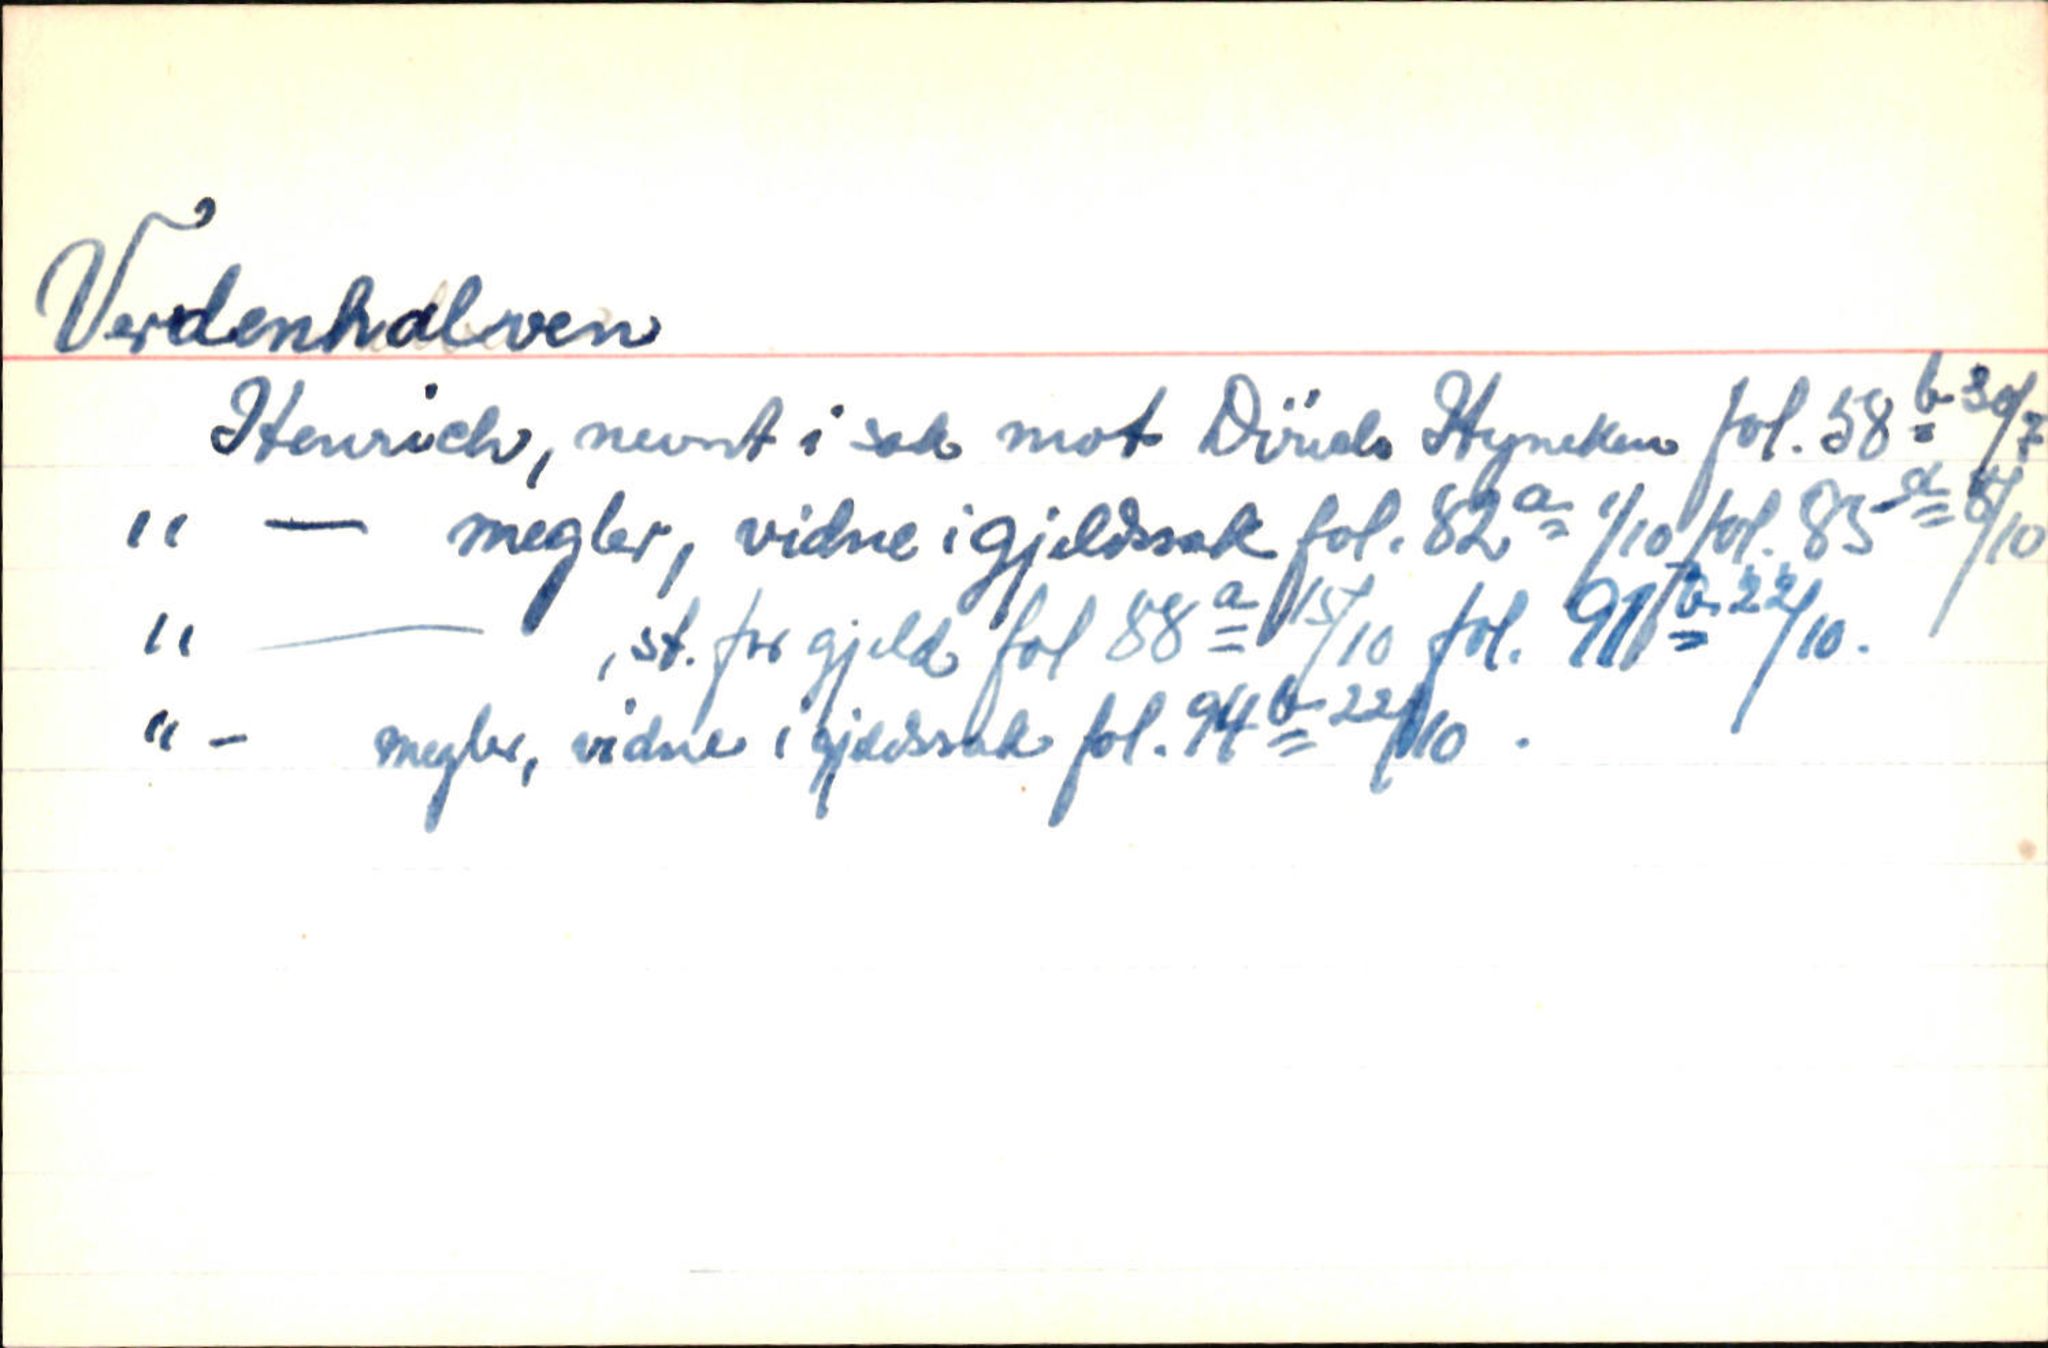 Verdenhalven
Henrich, nevnt i sak mot Diriek Hyneken fol. 58 b 30/7
" — megler, vidne i gjeldssak fol. 82 a 1/10 fol. 83 a 8/10
" — , st. for gjeld fol 88 a 15/10 fol. 91 b 22/10.
" – megler, vidne i gjeldssak fol. 94 b 22/10.